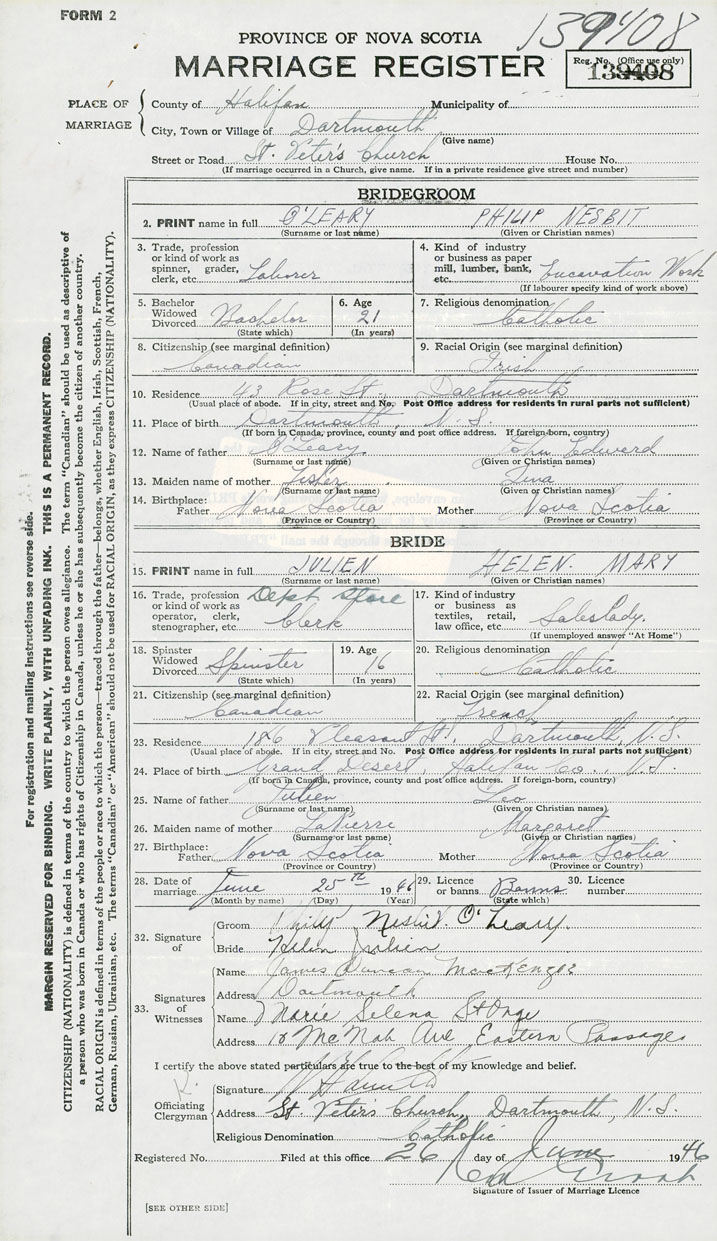 FORM 2
139408
PROVINCE OF NOVA SCOTIA
MARRIAGE REGISTER
Reg. No. (Office use only)
139408
PLACE OF MARRIAGE
County of Halifax Municipality of
City, Town or Village of Dartmouth
(Give name)
Street or Road St. Peter's Church House No.
(If marriage occurred in a Church, give name. If in a private residence give street and number)
BRIDEGROOM
2. PRINT name in full O'LEARY PHILIP NESBIT
(Surname or last name) (Given or Christian names)
3. Trade, profession or kind of work as spinner, grader, clerk, etc. Laborer
4. Kind of industry or business as paper mill, lumber, bank, etc. Excavation Work
(If labourer specify kind of work above)
5. Bachelor Widowed Divorced Bachelor
(State which)
6. Age 21
(In years)
7. Religious denomination
Catholic
8. Citizenship (see marginal definition)
Canadian
9. Racial Origin (see marginal definition)
Irish
10. Residence 43 Rose St. Dartmouth
(Usual place of abode. If in city, street and No. Post Office address for residents in rural parts not sufficient)
11. Place of birth Dartmouth, N.S.
(If born in Canada, province, county and post office address. If foreign-born, country)
12. Name of father O'Leary John Edward
(Surname or last name) (Given or Christian names)
13. Maiden name of mother Fisher
(Surname or last name) (Given or Christian names)
14. Birthplace: Father Nova Scotia Mother Nova Scotia
(Province or Country) (Province or Country)
BRIDE
15. PRINT name in full JULIEN HELEN. MARY
(Surname or last name) (Given or Christian names)
16. Trade, profession or kind of work as operator, clerk, stenographer, etc. Dept Store Clerk
17. Kind of industry or business as textiles, retail, law office, etc. Saleslady.
(If unemployed answer "At Home")
18. Spinster Widowed Divorced Spinster
(State which)
19. Age 16
(In years)
20. Religious denomination
Catholic
21. Citizenship (see marginal definition)
Canadian
22. Racial Origin (see marginal definition)
French
23. Residence 186 Pleasant St., Dartmouth, N.S.
(Usual place of abode. If in city, street and No. Post Office address for residents in rural parts not sufficient)
24. Place of birth Grand Desert, Halifax Co., N.S.
(If born in Canada, province, county and post office address. If foreign-born, country)
25. Name of father Julien Leo
(Surname or last name) (Given or Christian names)
26. Maiden name of mother LaPierre Margaret
(Surname or last name) (Given or Christian names)
27. Birthplace: Father Nova Scotia Mother Nova Scotia
(Province or Country) (Province or Country)
28. Date of marriage June 25th 1946
(Month by name) (Day) (Year)
29. Licence or banns Banns
(State which)
30. Licence number
32. Signature of
Groom Philip Nesbit O'Leary.
Bride Helen Julien
33. Signatures of Witnesses
Name James Duncan MacKenzie
Address Dartmouth
Name Marie Selena St Onge
Address 18 McNab Ave Eastern Passage
I certify the above stated particulars are true to the best of my knowledge and belief.
Officiating Clergyman
Signature
Address St. Peter's Church, Dartmouth, N.S.
Religious Denomination Catholic
Registered No. Filed at this office 26 day of June 1946
Signature of Issuer of Marriage Licence
[SEE OTHER SIDE]
For registration and mailing instructions see reverse side.
MARGIN RESERVED FOR BINDING. WRITE PLAINLY, WITH UNFADING INK. THIS IS A PERMANENT RECORD.
CITIZENSHIP (NATIONALITY) is defined in terms of the country to which the person owes allegiance. The term "Canadian" should be used as descriptive of
a person who was born in Canada or who has rights of Citizenship in Canada, unless he or she has subsequently become the citizen of another country.
RACIAL ORIGIN is defined in terms of the people or race to which the person—traced through the father—belongs, whether English, Irish, Scottish, French,
German, Russian, Ukrainian, etc. The terms "Canadian" or "American" should not be used for RACIAL ORIGIN, as they express CITIZENSHIP (NATIONALITY).